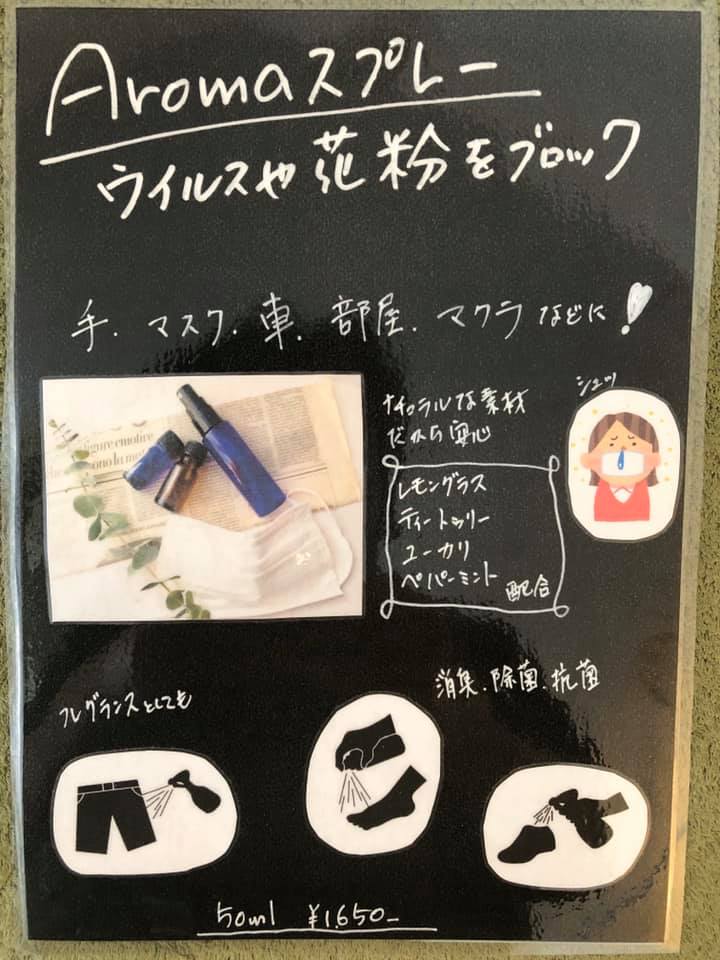 Aromaスプレー
ウイルスや花粉をブロック
手.マスク.車.部屋.マクラなどに!
figure emotive
ナチュラルな素材
だから安心
シュッ
レモングラス
ティートゥリー
ユーカリ
ペパーミント
配合
消臭.除菌.抗菌
フレグランスとしても
50ml ¥1.650-